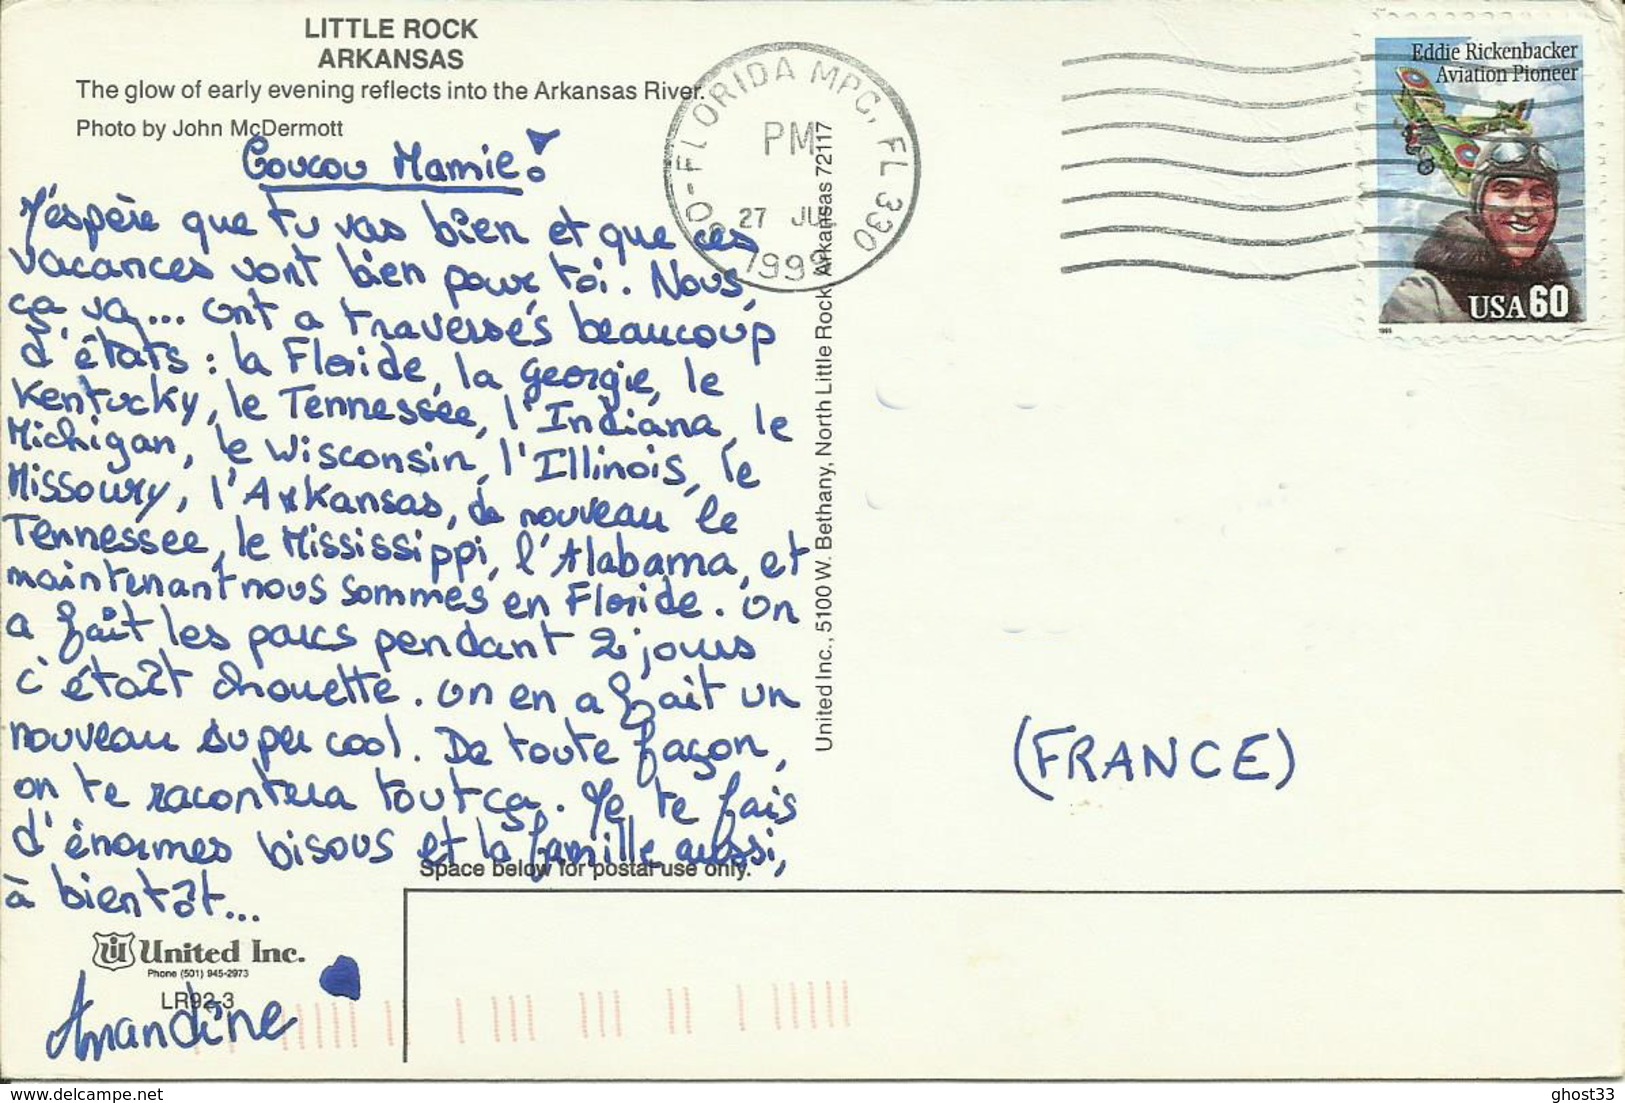 LITTLE ROCK
ARKANSAS
The glow of early evening reflects into the Arkansas River.
Photo by John McDermott
Coucou Mamie!
J'espère que tu vas bien et que ces
vacances vont bien pour toi. Nous,
ça va... ont a traversés beaucoup
d'états : la Floride, la Georgie, le
Kentucky, le Tennessée, l'Indiana, le
Michigan, le Wisconsin, l'Illinois, le
Missoury, l'Arkansas, de nouveau le
Tennessee, le Mississippi, l'Alabama, et
maintenant nous sommes en Floride. On
a fait les parcs pendant 2 jours
c'étaît chouette. On en a fait un
nouveau super cool. De toute façon,
on te racontera tout ça. Je te fais
d'énormes bisous et la famille aussi,
à bientôt...
Amandine
Space below for postal use only.
United Inc.
Phone (501) 945-2973
LR92-3
United Inc., 5100 W. Bethany, North Little Rock, Arkansas 72117
FLORIDA MPC, FL 330
PM
27
1999
Eddie Rickenbacker
Aviation Pioneer
USA 60
1995
(FRANCE)
ghost33